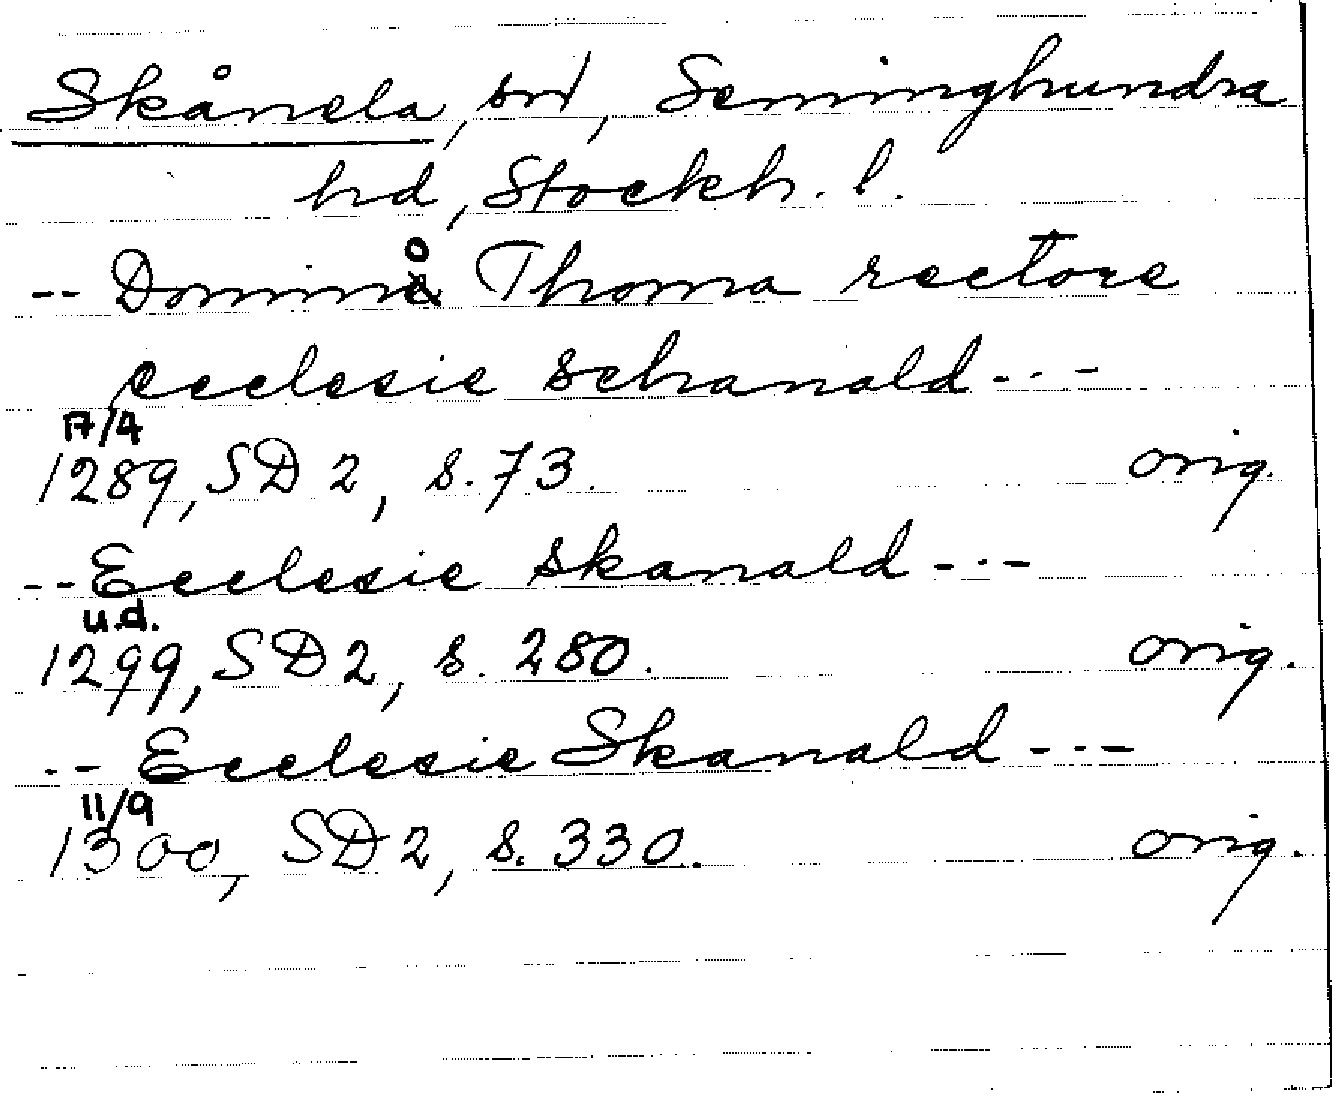 Skånela, sn, Seminghundra
hd, Stockh. l.
-- Domino Thoma rectore
ecclesie schanald---
17/4
1289, SD 2, s. 73. orig.
-- Ecclesie skanald---
u.d.
1299, SD 2, s. 280. orig.
-- Ecclesie Skanald---
11/9
1300, SD 2, s. 330. orig.